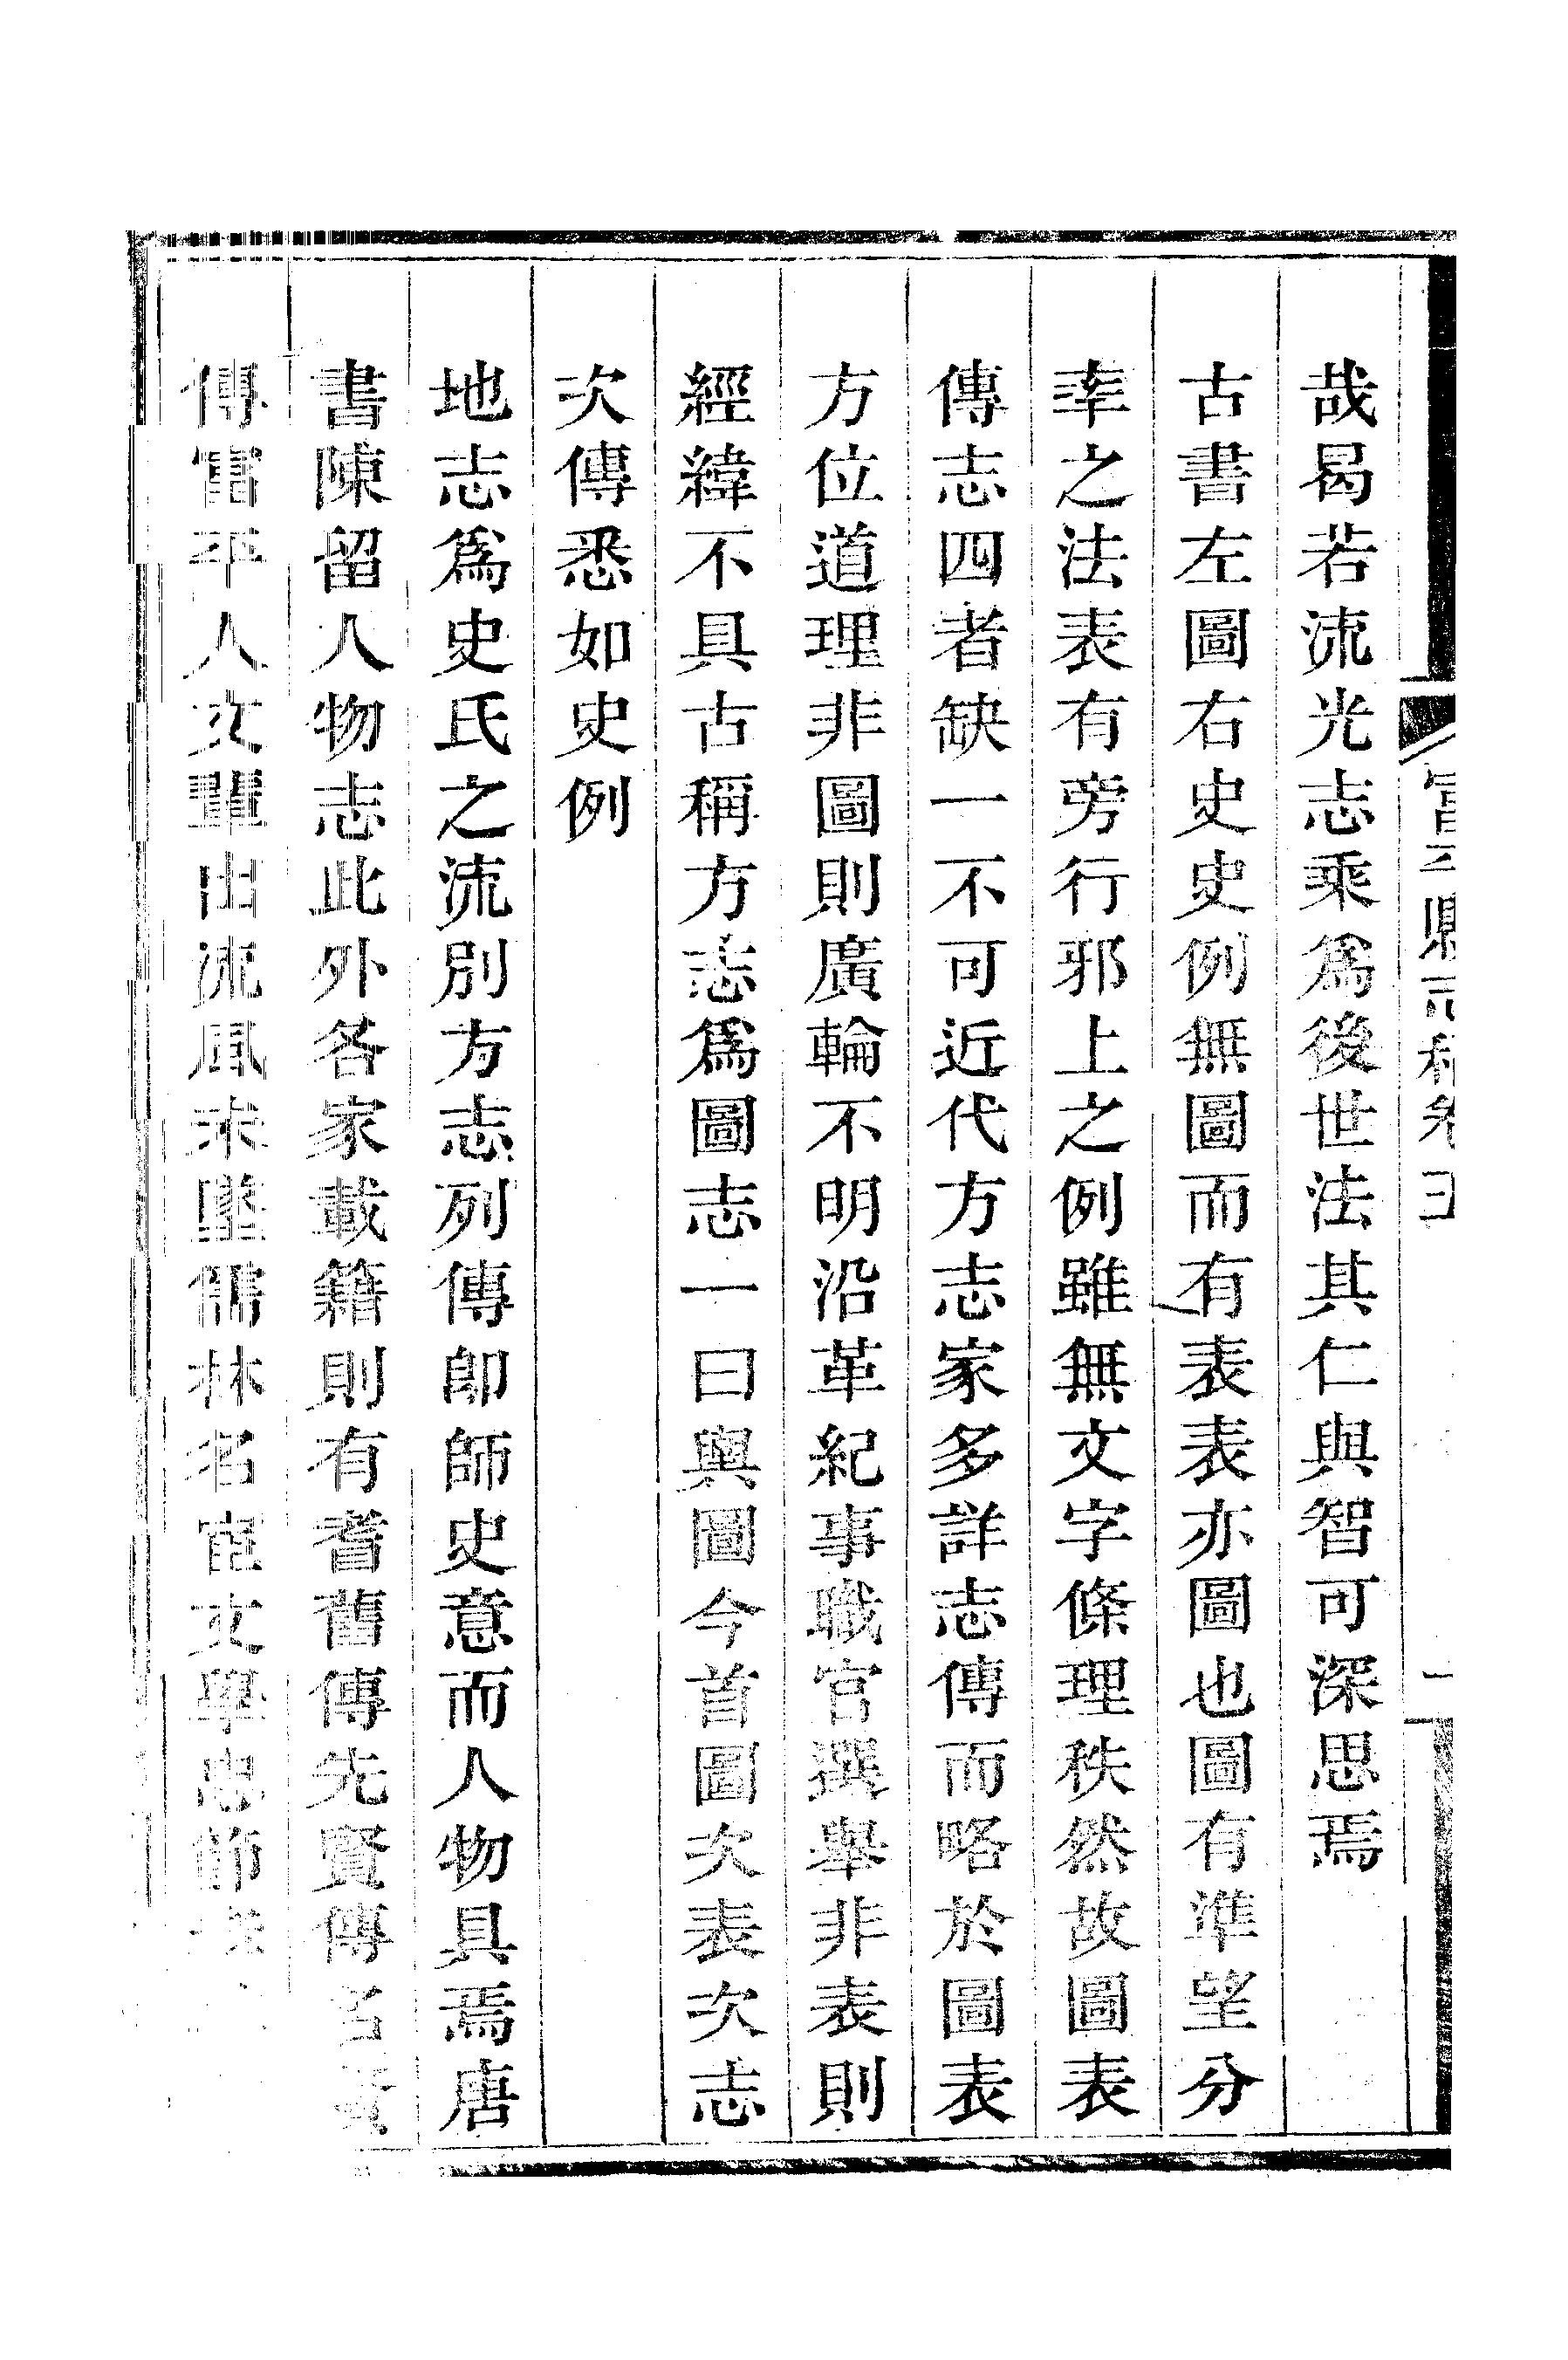 富平縣志稿卷五
一
哉曷若流光志乘爲後世法其仁與智可深思焉
古書左圖右史史例無圖而有表表亦圖也圖有準望分
率之法表有旁行邪上之例雖無文字條理秩然故圖表
傳志四者缺一不可近代方志家多詳志傳而略於圖表
方位道理非圖則廣輪不明沿革紀事職官選舉非表則
經緯不具古稱方志爲圖志一曰輿圖今首圖次表次志
次傳悉如史例
地志爲史氏之流別方志列傳卽師史意而人物具焉唐
書陳留人物志此外各家載籍則有耆舊傳先賢傳名賢
傳富平人文輩出流風未墜儒林名宦文學忠節孝